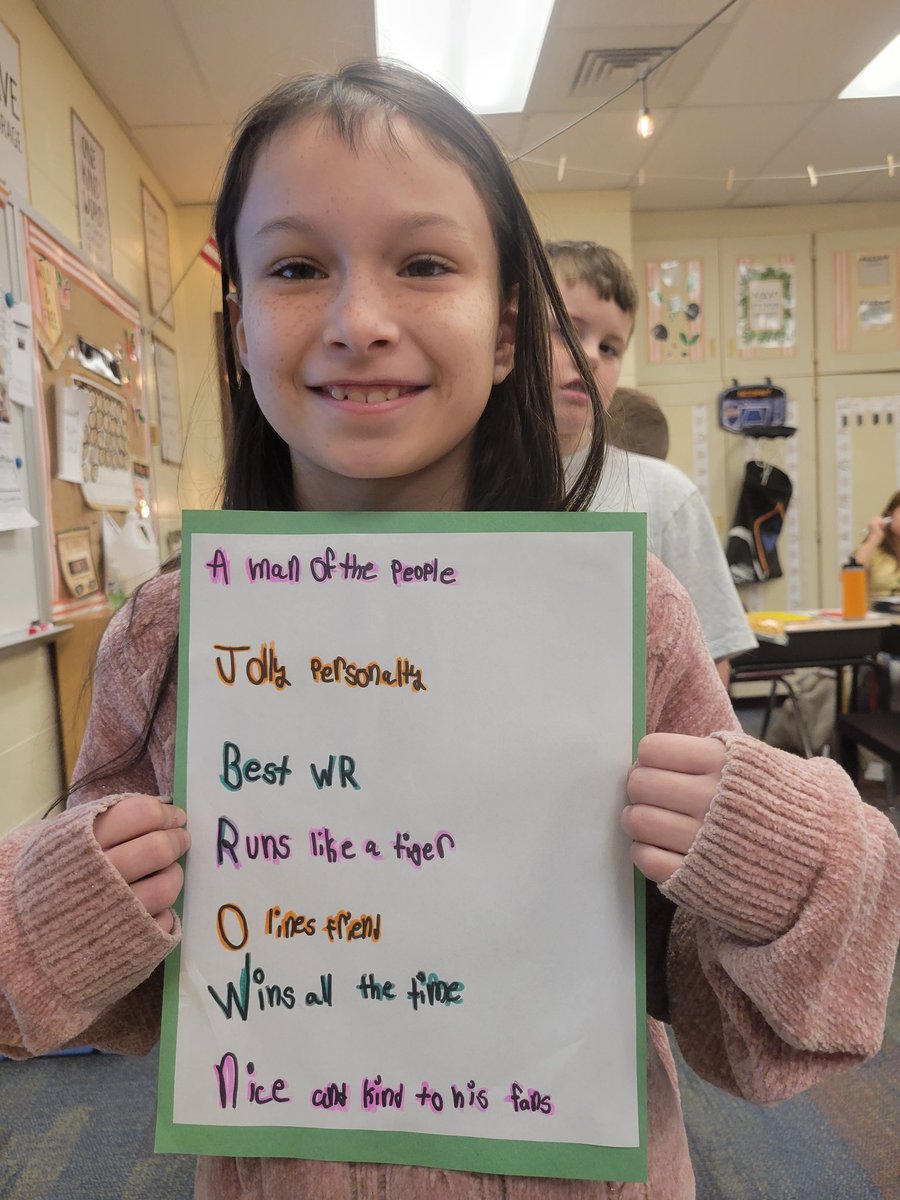 A man of the people
Jolly personalty
Best WR
Runs like a tiger
O lines friend
Wins all the time
Nice and kind to his fans